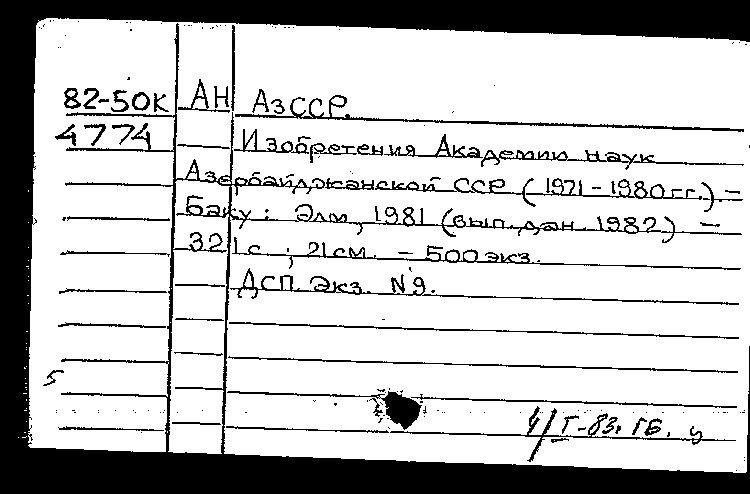 82-50К АН АзССР.
4774 Изобретения Академии наук
Азербайджанской ССР (1971-1980гг.). –
Баку: Элм, 1981 (вып. дан. 1982) –
321с ; 21см. – 500экз.
ДСП. Экз. №9.
5
4/I-83. ГБ.